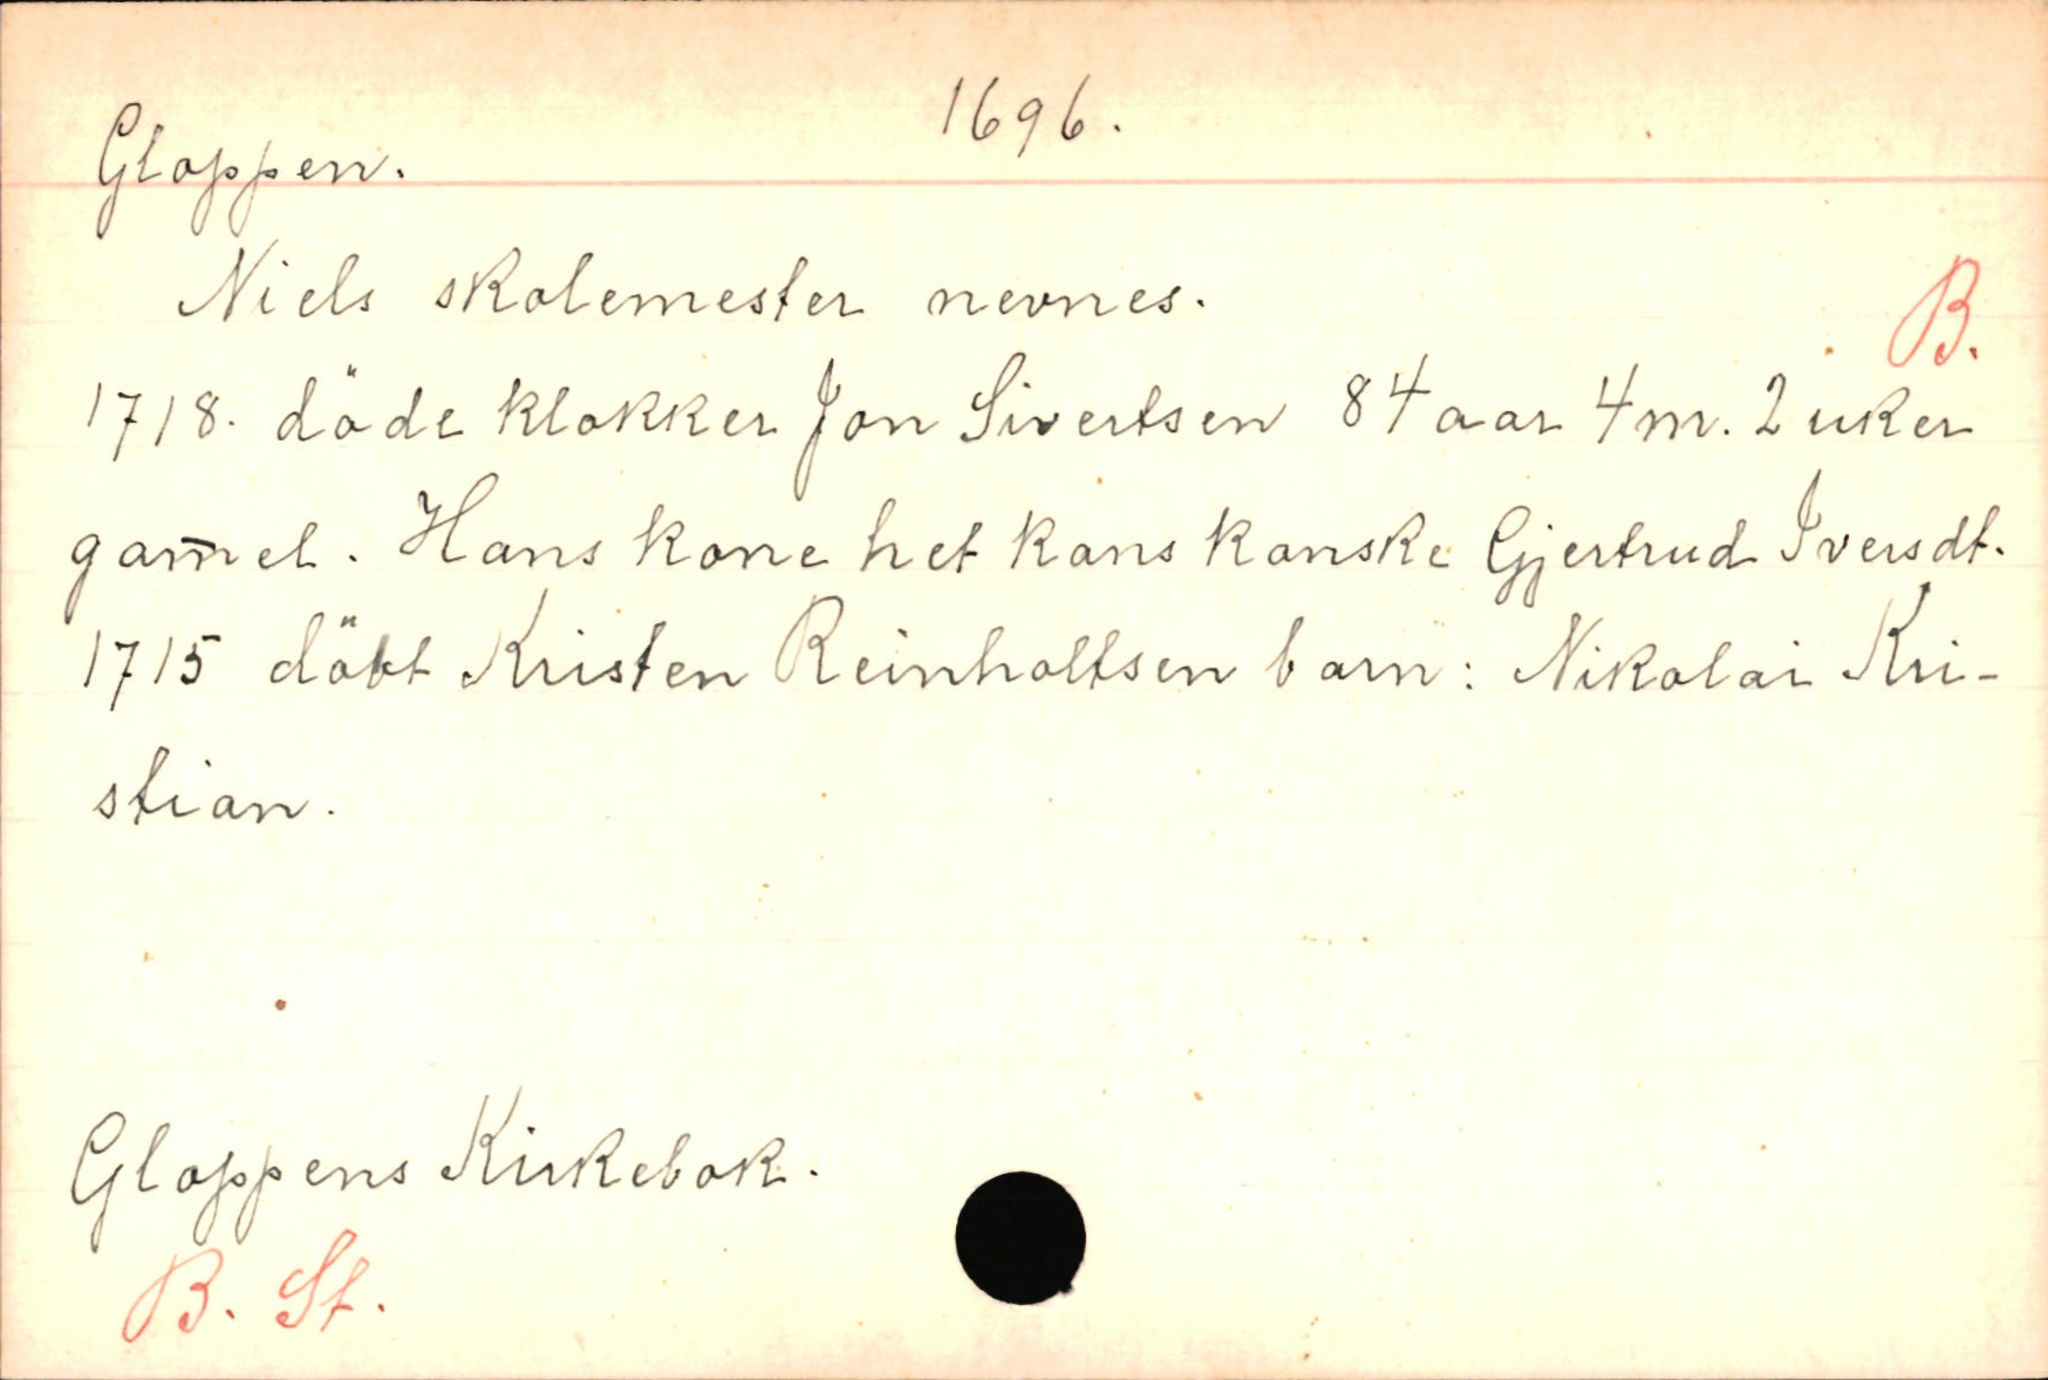 1696.
Gloppen.
Niels skolemester nevnes.
B.
1718. döde klokker Jon Sivertsen 84 aar 4 m. 2 uker
gam̅el. Hans kone het kans kanske Gjertrud Iversdt.
1715 döbt Kristen Reinholtsen barn: Nikolai Kri-
stian.
Gloppens Kirkebok.
B. St.